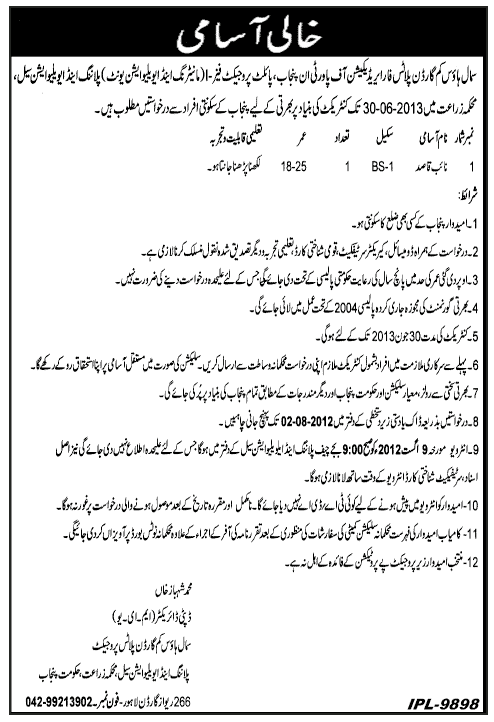 خالی آسامی
سمال ہاؤس کم گارڈن پلاٹس فار ایریڈیکیشن آف پاورٹی ان پنجاب، پائلٹ پروجیکٹ فیز-I (مانیٹرنگ اینڈ ایویلیوایشن یونٹ) پلاننگ اینڈ ایویلیوایشن سیل،
محکمہ زراعت میں 30-06-2013 تک کنٹریکٹ کی بنیاد پر بھرتی کے لیے پنجاب کے سکونتی افراد سے درخواستیں مطلوب ہیں۔
نمبر شمار نام آسامی سکیل تعداد عمر تعلیمی قابلیت و تجربہ
1 نائب قاصد BS-1 1 18-25 لکھنا پڑھنا جانتا ہو۔
شرائط:
1- امیدوار پنجاب کے کسی بھی ضلع کا سکونتی ہو۔
2- درخواست کے ہمراہ ڈومیسائل، کیریکٹر سرٹیفکیٹ، قومی شناختی کارڈ، تعلیمی تجربہ و دیگر تصدیق شدہ نقول منسلک کرنا لازمی ہے۔
3- اوپر دی گئی عمر کی حد میں پانچ سال کی رعایت حکومتی پالیسی کے تحت دی جائے گی جس کے لئے علیحدہ درخواست دینے کی ضرورت نہیں۔
4- بھرتی گورنمنٹ کی مجوزہ جاری کردہ پالیسی 2004 کے تحت عمل میں لائی جائے گی۔
5- کنٹریکٹ کی مدت 30 جون 2013 تک کے لئے ہوگی۔
6- پہلے سے سرکاری ملازمت میں افراد بشمول کنٹریکٹ ملازم اپنی درخواست محکمانہ وساطت سے ارسال کریں۔ سلیکشن کی صورت میں مستقل آسامی پر اپنا استحقاق روکے رکھے گا۔
7- بھرتی سختی سے رولز، معیار سلیکشن اور حکومت پنجاب اور دیگر مندرجات کے مطابق تمام پنجاب کی بنیاد پر پُر کی جائے گی۔
8- درخواستیں بذریعہ ڈاک یا دستی زیر دستخطی کے دفتر میں 02-08-2012 تک پہنچ جانی چاہئیں۔
9- انٹرویو مورخہ 9 اگست 2012 کو صبح 9:00 بجے چیف پلاننگ اینڈ ایویلیوایشن سیل کے دفتر میں ہوگا جس کے لئے علیحدہ اطلاع نہیں دی جائے گی نیز اصل
اسناد، سرٹیفکیٹ شناختی کارڈ انٹرویو کے وقت ساتھ لانا لازمی ہوگا۔
10- امیدوار کو انٹرویو میں پیش ہونے کے لیے کوئی ٹی اے/ڈی اے نہیں دیا جائے گا۔ نامکمل اور مقررہ تاریخ کے بعد موصول ہونے والی درخواست پر غور نہ ہوگا۔
11- کامیاب امیدوار کی فہرست محکمانہ سلیکشن کمیٹی کی سفارشات کی منظوری کے بعد تقرر نامہ کی آفر کے اجراء کے علاوہ محکمانہ نوٹس بورڈ پر آویزاں کر دی جائیگی۔
12- منتخب امیدوار زیر پروجیکٹ پے پروٹیکشن کے فائدہ کے اہل نہ ہے۔
محمد شہباز خاں
ڈپٹی ڈائریکٹر (ایم۔ای۔یو)
سمال ہاؤس کم گارڈن پلاٹس پروجیکٹ
پلاننگ اینڈ ایویلیوایشن سیل، محکمہ زراعت، حکومت پنجاب
266 ریواز گارڈن لاہور۔ فون نمبر۔ 042-99213902
IPL-9898